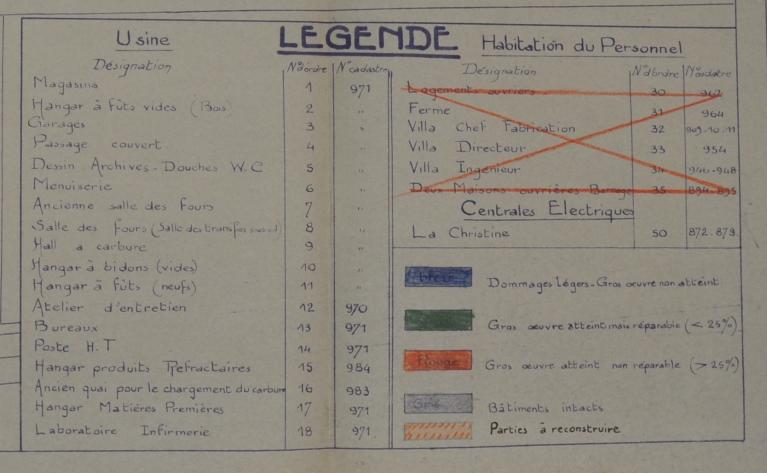 LEGENDE
Usine
Désignation N°d'ordre N°cadastre
Magasins 1 971
Hangar à fûts vides (Bois) 2 "
Garages 3 "
Passage couvert 4 "
Dessin - Archives - Douches W.C 5 "
Menuiserie 6 "
Ancienne salle des Fours 7 "
Salle des fours (Salle des 8 "
Hall a carbure 9 "
Hangar à bidons (vides) 10 "
Hangar à fûts (neufs) 11 "
Atelier d'entretien 12 970
Bureaux 13 971
Poste H.T 14 971
Hangar produits Réfractaires 15 984
Ancien quai pour le chargement du carbure 16 983
Hangar Matières Premières 17 971
Laboratoire Infirmerie 18 971
Habitation du Personnel
Désignation N°d'ordre N°cadastre
Logements ouvriers 30 962
Ferme 31 964
Villa Chef Fabrication 32 909-10-11
Villa Directeur 33 954
Villa Ingénieur 34 946-948
Deux Maisons ouvrières Barrage 35 894-895
Centrales Electriques
La Christine 50 872.873
Bleu Dommages légers - Gros oeuvre non atteint
Gros oeuvre atteint mais réparable (< 25%)
Rouge Gros oeuvre atteint non réparable (> 25%)
Gris Bâtiments intacts
Parties à reconstruire